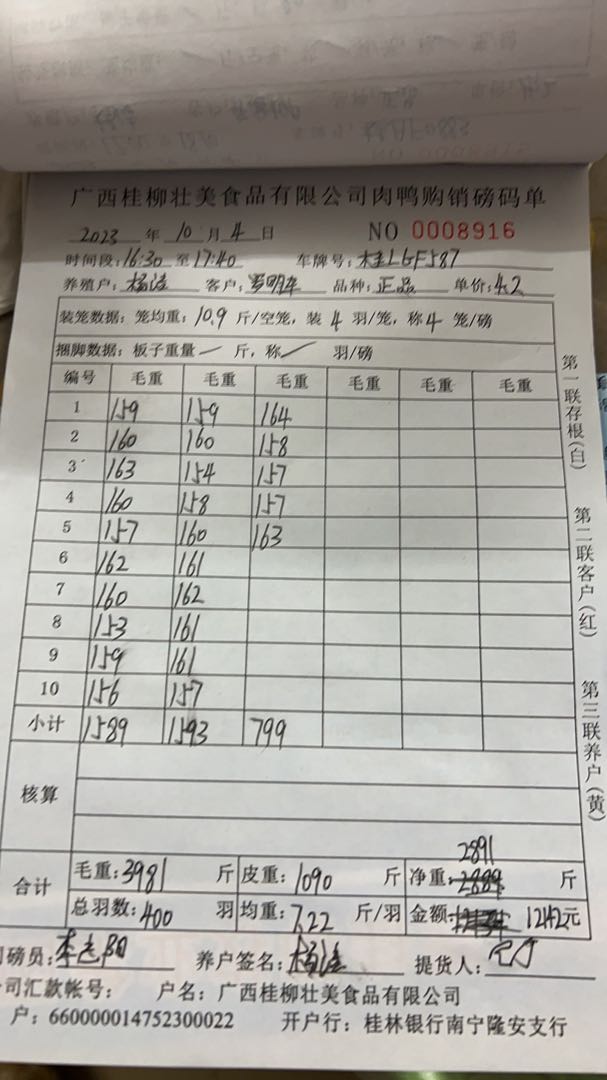 广西桂柳壮美食品有限公司肉鸭购销磅码单
2023 年 10 月 4 日 NO 0008916
时间段: 16:30 至 17:40 车牌号: 桂L6F587
养殖户: 杨 客户: 罗明 品种: 正品 单价: 4.2
装笼数据: 笼均重: 10.9 斤/空笼, 装 4 羽/笼, 称 4 笼/磅
捆脚数据: 板子重量 斤, 称 羽/磅
编号 毛重 毛重 毛重 毛重 毛重 毛重
1 159 159 164
2 160 160 158
3 163 154 157
4 160 158 157
5 157 160 163
6 162 161
7 160 162
8 153 161
9 159 161
10 156 157
小计 1589 1593 799
核算
合计 毛重: 3981 斤 皮重: 1090 斤 净重: 2891 斤
总羽数: 400 羽 均重: 7.22 斤/羽 金额 12142元
磅员: 李 养户签名: 杨 提货人:
司汇款帐号: 户名: 广西桂柳壮美食品有限公司
户: 660000014752300022 开户行: 桂林银行南宁隆安支行
第一联存根(白)
第二联客户(红)
第三联养户(黄)